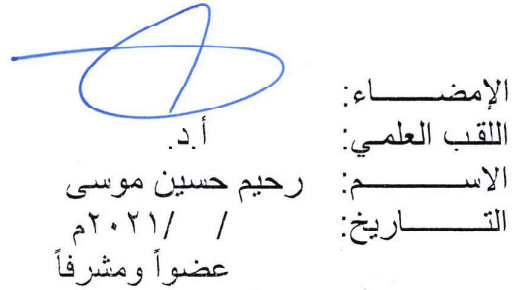 الإمضــــــاء:
اللقب العلمـي: أ.د.
الاســــــم: رحيم حسين موسى
التــــــاريخ: / /٢٠٢١م
عضواً ومشرفاً